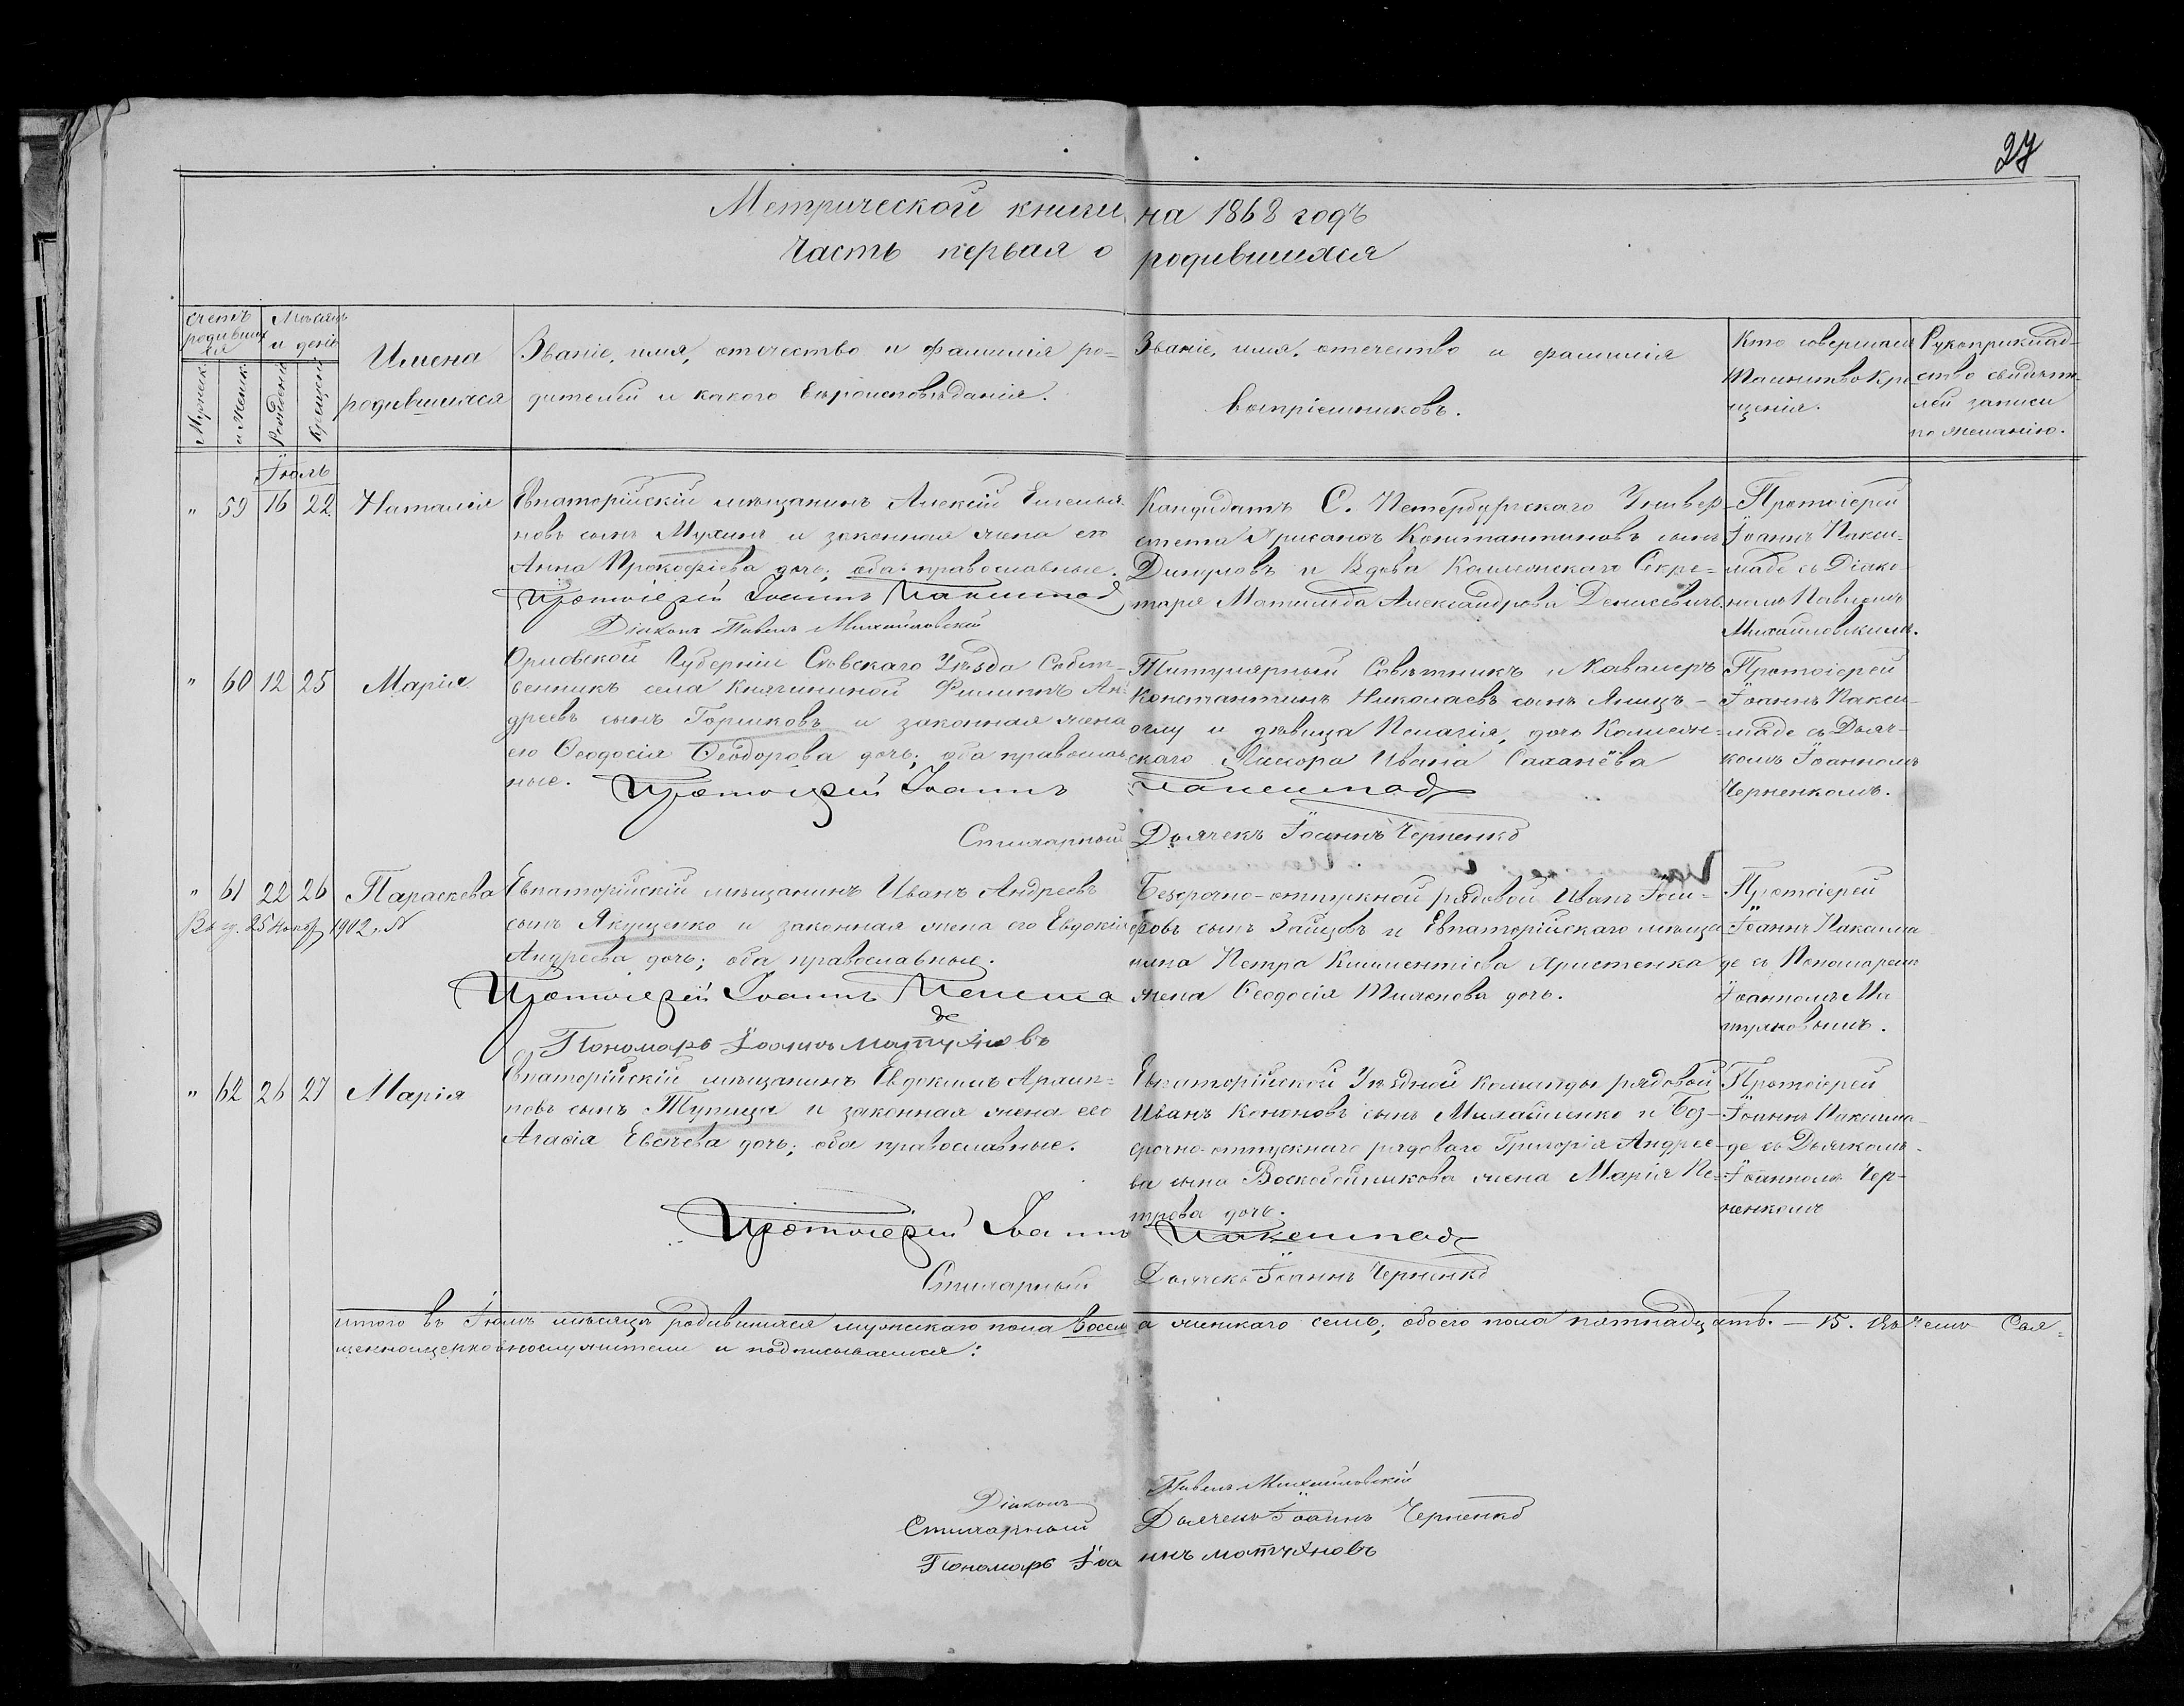 27
Метрической книги на 1868 годъ
Часть первая о родившихся
Счетъ родившихся
Мѣсяцъ и день
Мужеск.
и Женск.
Рожденія
Крещенія
Имена
родившихся
Званіе, имя, отечество и фамилія ро-
дителей и какого вѣроисповѣданія.
Званіе, имя, отечество и фамилія
воспріемниковъ.
Кто совершалъ
Таинство Кре-
щенія.
Рукоприклад-
ство свидѣте-
лей записи
по желанію.
Іюль
" 59 16 22 Наталія
Евпаторійскій мѣщанинъ Алексѣй Емелья-
новъ сынъ Мухинъ и законная жена его
Анна Прокофіева дочь; оба православные.
Протоіерей Іоаннъ
Діаконъ Павелъ Михайловскій
Кандидатъ С. Петербургскаго Универ-
ситета Константиновъ сынъ
и Вдова Коллежскаго Секре-
таря Матильда Александрова Денисевичъ.
Протоіерей
Іоаннъ Пакси-
маде съ Діако-
номъ Павломъ
Михайловскимъ.
" 60 12 25 Марія
Орловской Губерніи Сѣвскаго Уѣзда Собст-
венникъ села Княгининой Филиппъ Ан-
дреевъ сынъ Горшковъ и законная жена
его Ѳеодосія Ѳеодорова дочь; оба православ-
ные. Протоіерей Іоаннъ Паксимаде
Стихарный Дьячекъ Іоаннъ Черненко
Титулярный Совѣтникъ и Кавалеръ
Константинъ Николаевъ сынъ
оглу и дѣвица Пелагія, дочь Коллеж-
скаго Ивана
Протоіерей
Іоаннъ Пакси-
маде съ Дьяч-
комъ Іоанномъ
Черненкомъ.
" 61 22 26 Параскева
25 1902 г. №
Евпаторійскій мѣщанинъ Иванъ Андреевъ
сынъ Якущенко и законная жена его Евдокія
Андреева дочь; оба православные.
Протоіерей Іоаннъ Паксима
де
Пономарь Іоаннъ Матухновъ
Безсрочно-отпускной рядовой Иванъ
сынъ Зайцовъ и Евпаторійскаго мѣща-
нина Петра Климентіева Христенка
жена Ѳеодосія Тихонова дочь.
Протоіерей
Іоаннъ Паксима-
де съ Пономаремъ
Іоанномъ Ма-
тухновымъ.
" 62 26 27 Марія
Евпаторійскій мѣщанинъ Евдокимъ Архип-
повъ сынъ Тупица и законная жена его
Агафія Евсѣева дочь; оба православные.
Протоіерей Іоаннъ Паксимаде
Стихарный Дьячекъ Іоаннъ Черненко
Евпаторійской Уѣздной команды рядовой
Иванъ Кононовъ сынъ Михайленко и Без-
срочно-отпускнаго рядоваго Григорія Андрее-
ва сына Воскобойникова жена Марія Пе-
трова дочь.
Протоіерей
Іоаннъ Паксима-
де съ Дьячкомъ
Іоанномъ Чер-
ненкомъ
итого въ Іюлѣ мѣсяцѣ родившихся мужескаго пола восемь а женскаго семь; обоего пола пятнадцать. — 15. Въ чемъ Свя-
щенноцерковнослужители и подписываемся:
Діаконъ Павелъ Михайловскій
Стихарный Дьячекъ Іоаннъ Черненко
Пономарь Іоаннъ Матухновъ